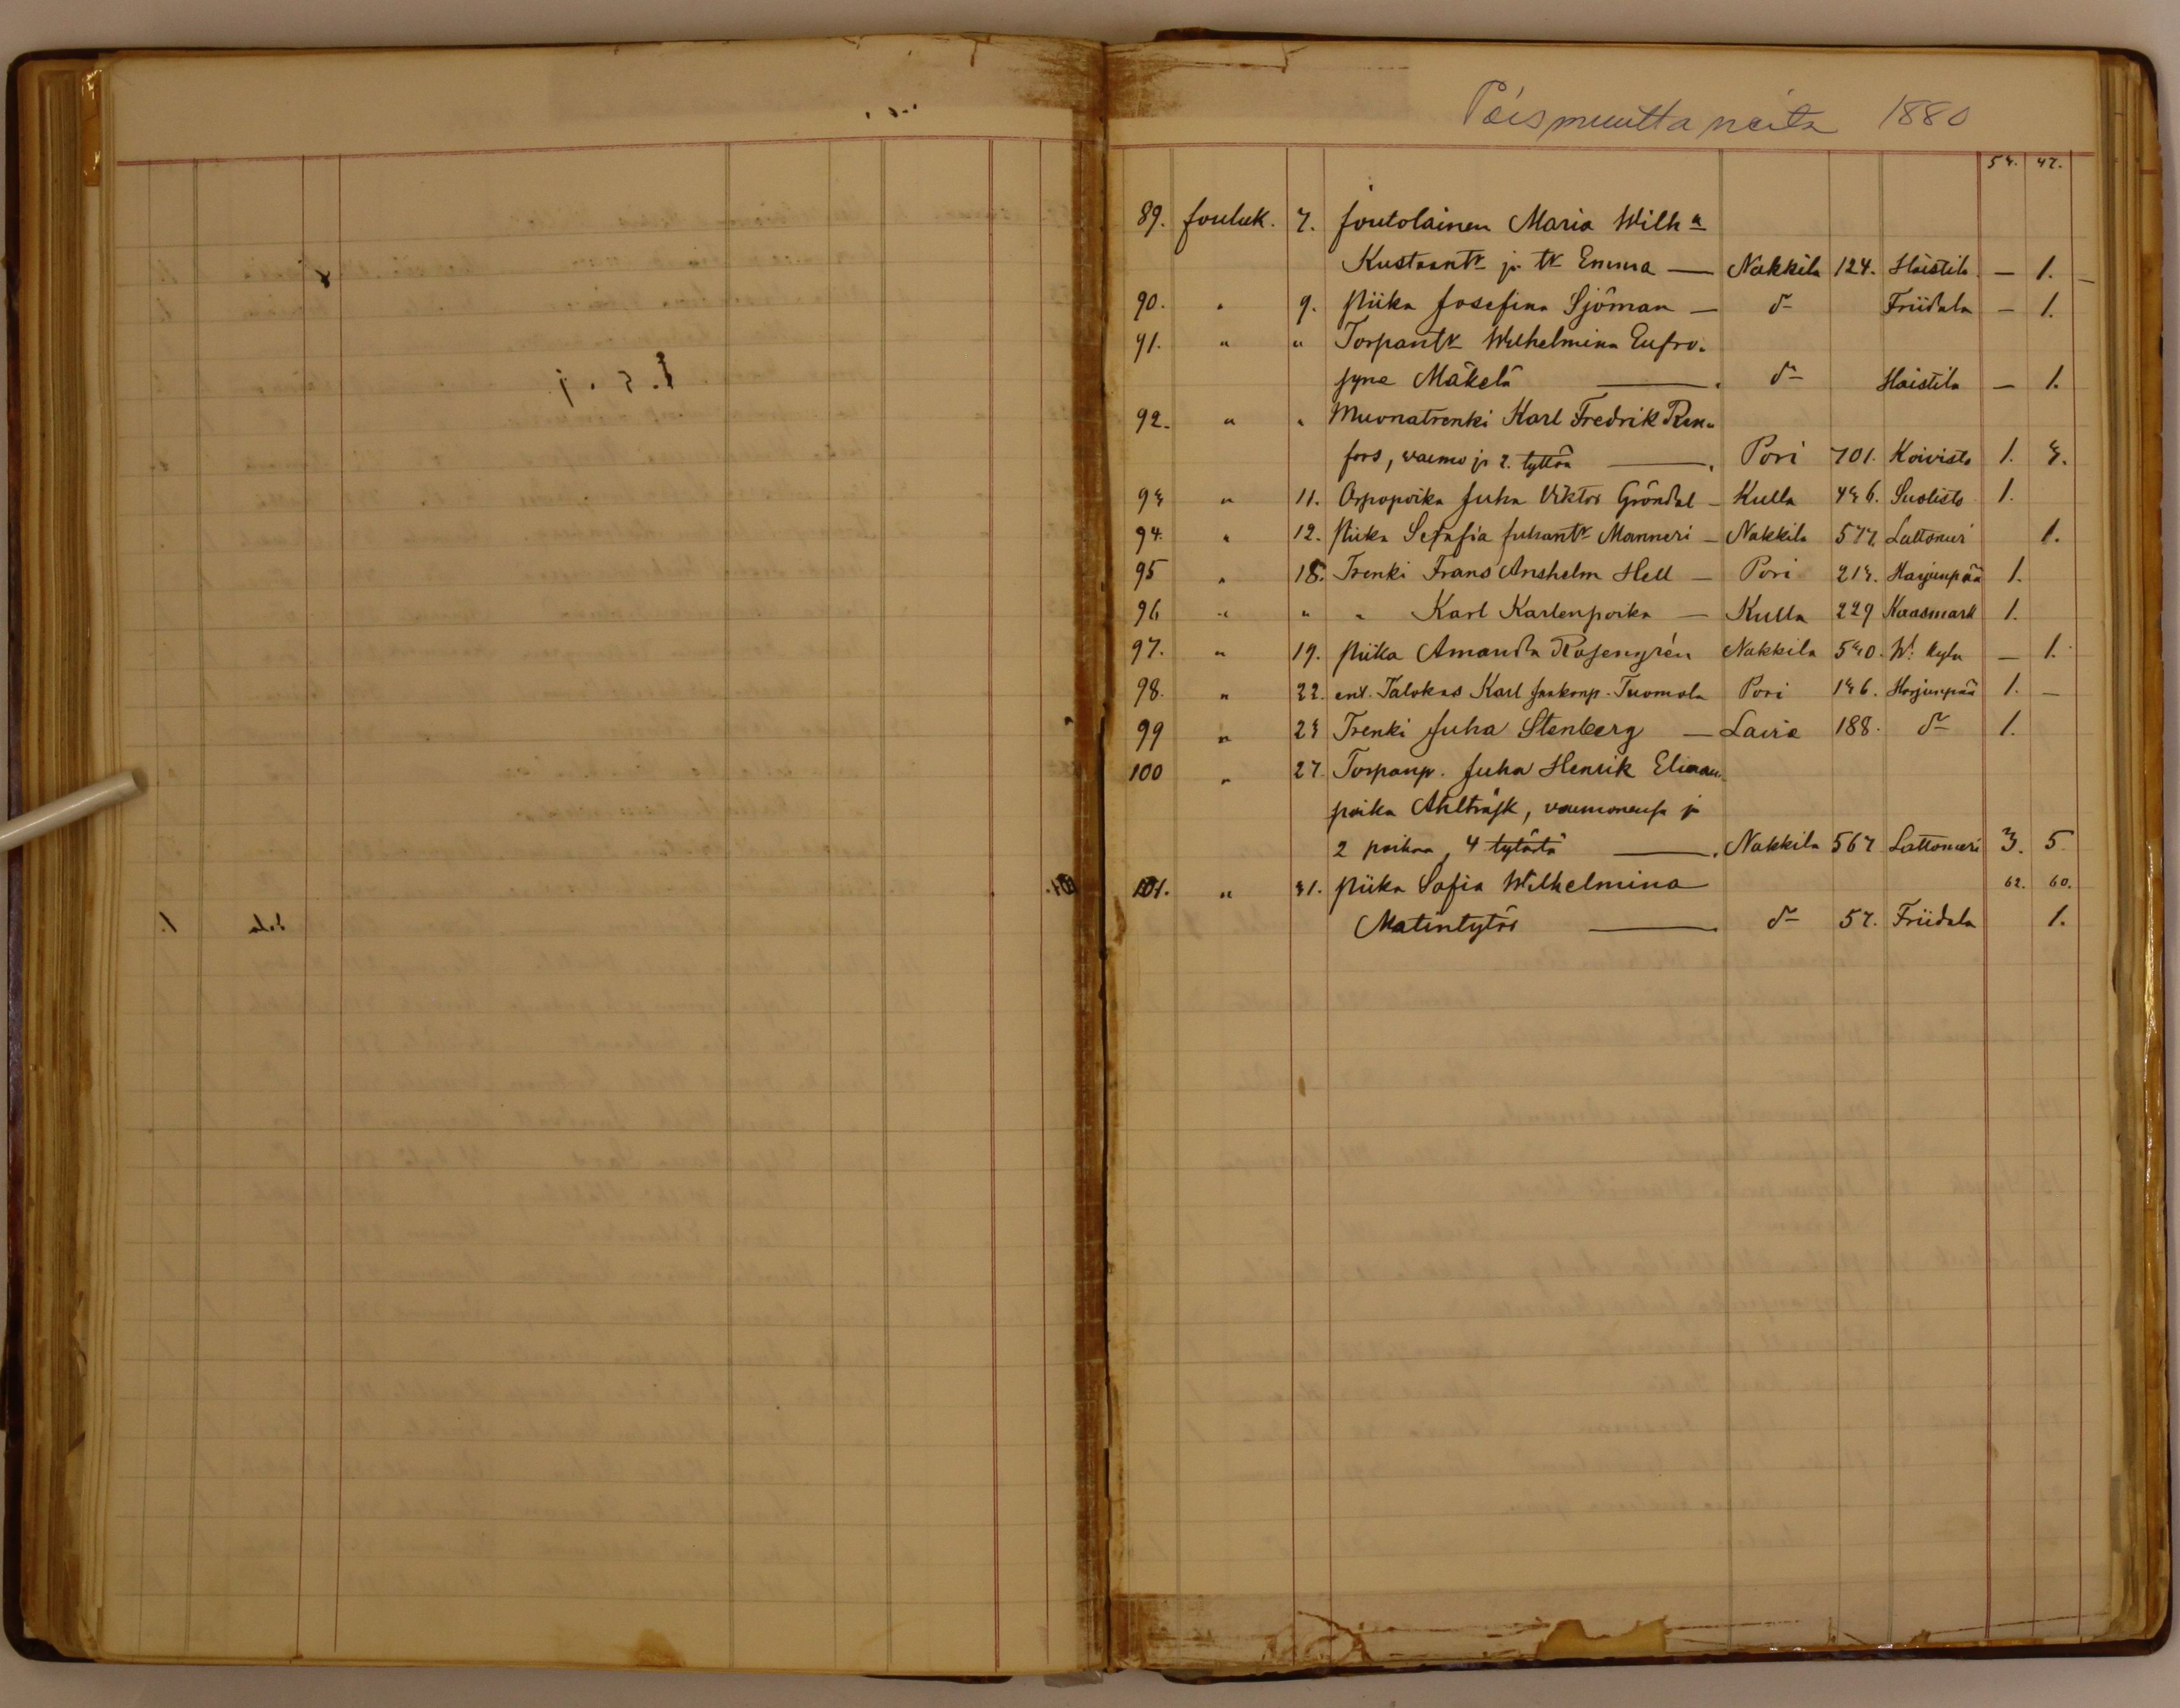 Poismuuttaneita 1880
53. 47.
89. Jouluk. 7. Joutolainen Maria Wilh:a
Kustaantr ja tr Emma — Nakkila 124. Haistila — 1.
90. " 9. Piika Josefina Sjöman — do Friidala — 1.
91. " " Torpantr Wilhelmina Eufro-
syne Mäkelä — do Haistila — 1.
92. " " Muonatrenki Karl Fredrik
fors, vaimo ja 2. tyttöä — Pori 701. Koivisto 1. 3.
93 " 11. Orpopoika Juha Viktor Gröndal — Kulla 436. Suolisto 1.
94. " 12. Piika Serafia Juhantr Manneri — Nakkila 577. Lattomeri 1.
95 " 18. Trenki Frans Anshelm Hell — Pori 213. Harjunpää 1.
96 " " " Karl Karlenpoika — Kulla 229 Kaasmark 1.
97. " 19. Piika Amanda Rosengrén Nakkila 530. W: kylä — 1.
98. " 22. ent. Talokas Karl Jaakonp. Tuomola Pori 136. Harjunpää 1. —
99 " 23 Trenki Juha Stenberg — Lavia 188. do 1.
100 " 27. Torpanp. Juha Henrik Eliaan-
poika Ahlträsk, vaimonensa ja
2 poikaa, 4 tytärtä — Nakkila 567 Lattomeri 3. 5.
101. " 31. Piika Sofia Wilhelmina 62. 60.
Matintytär — do 57. Friidala 1.